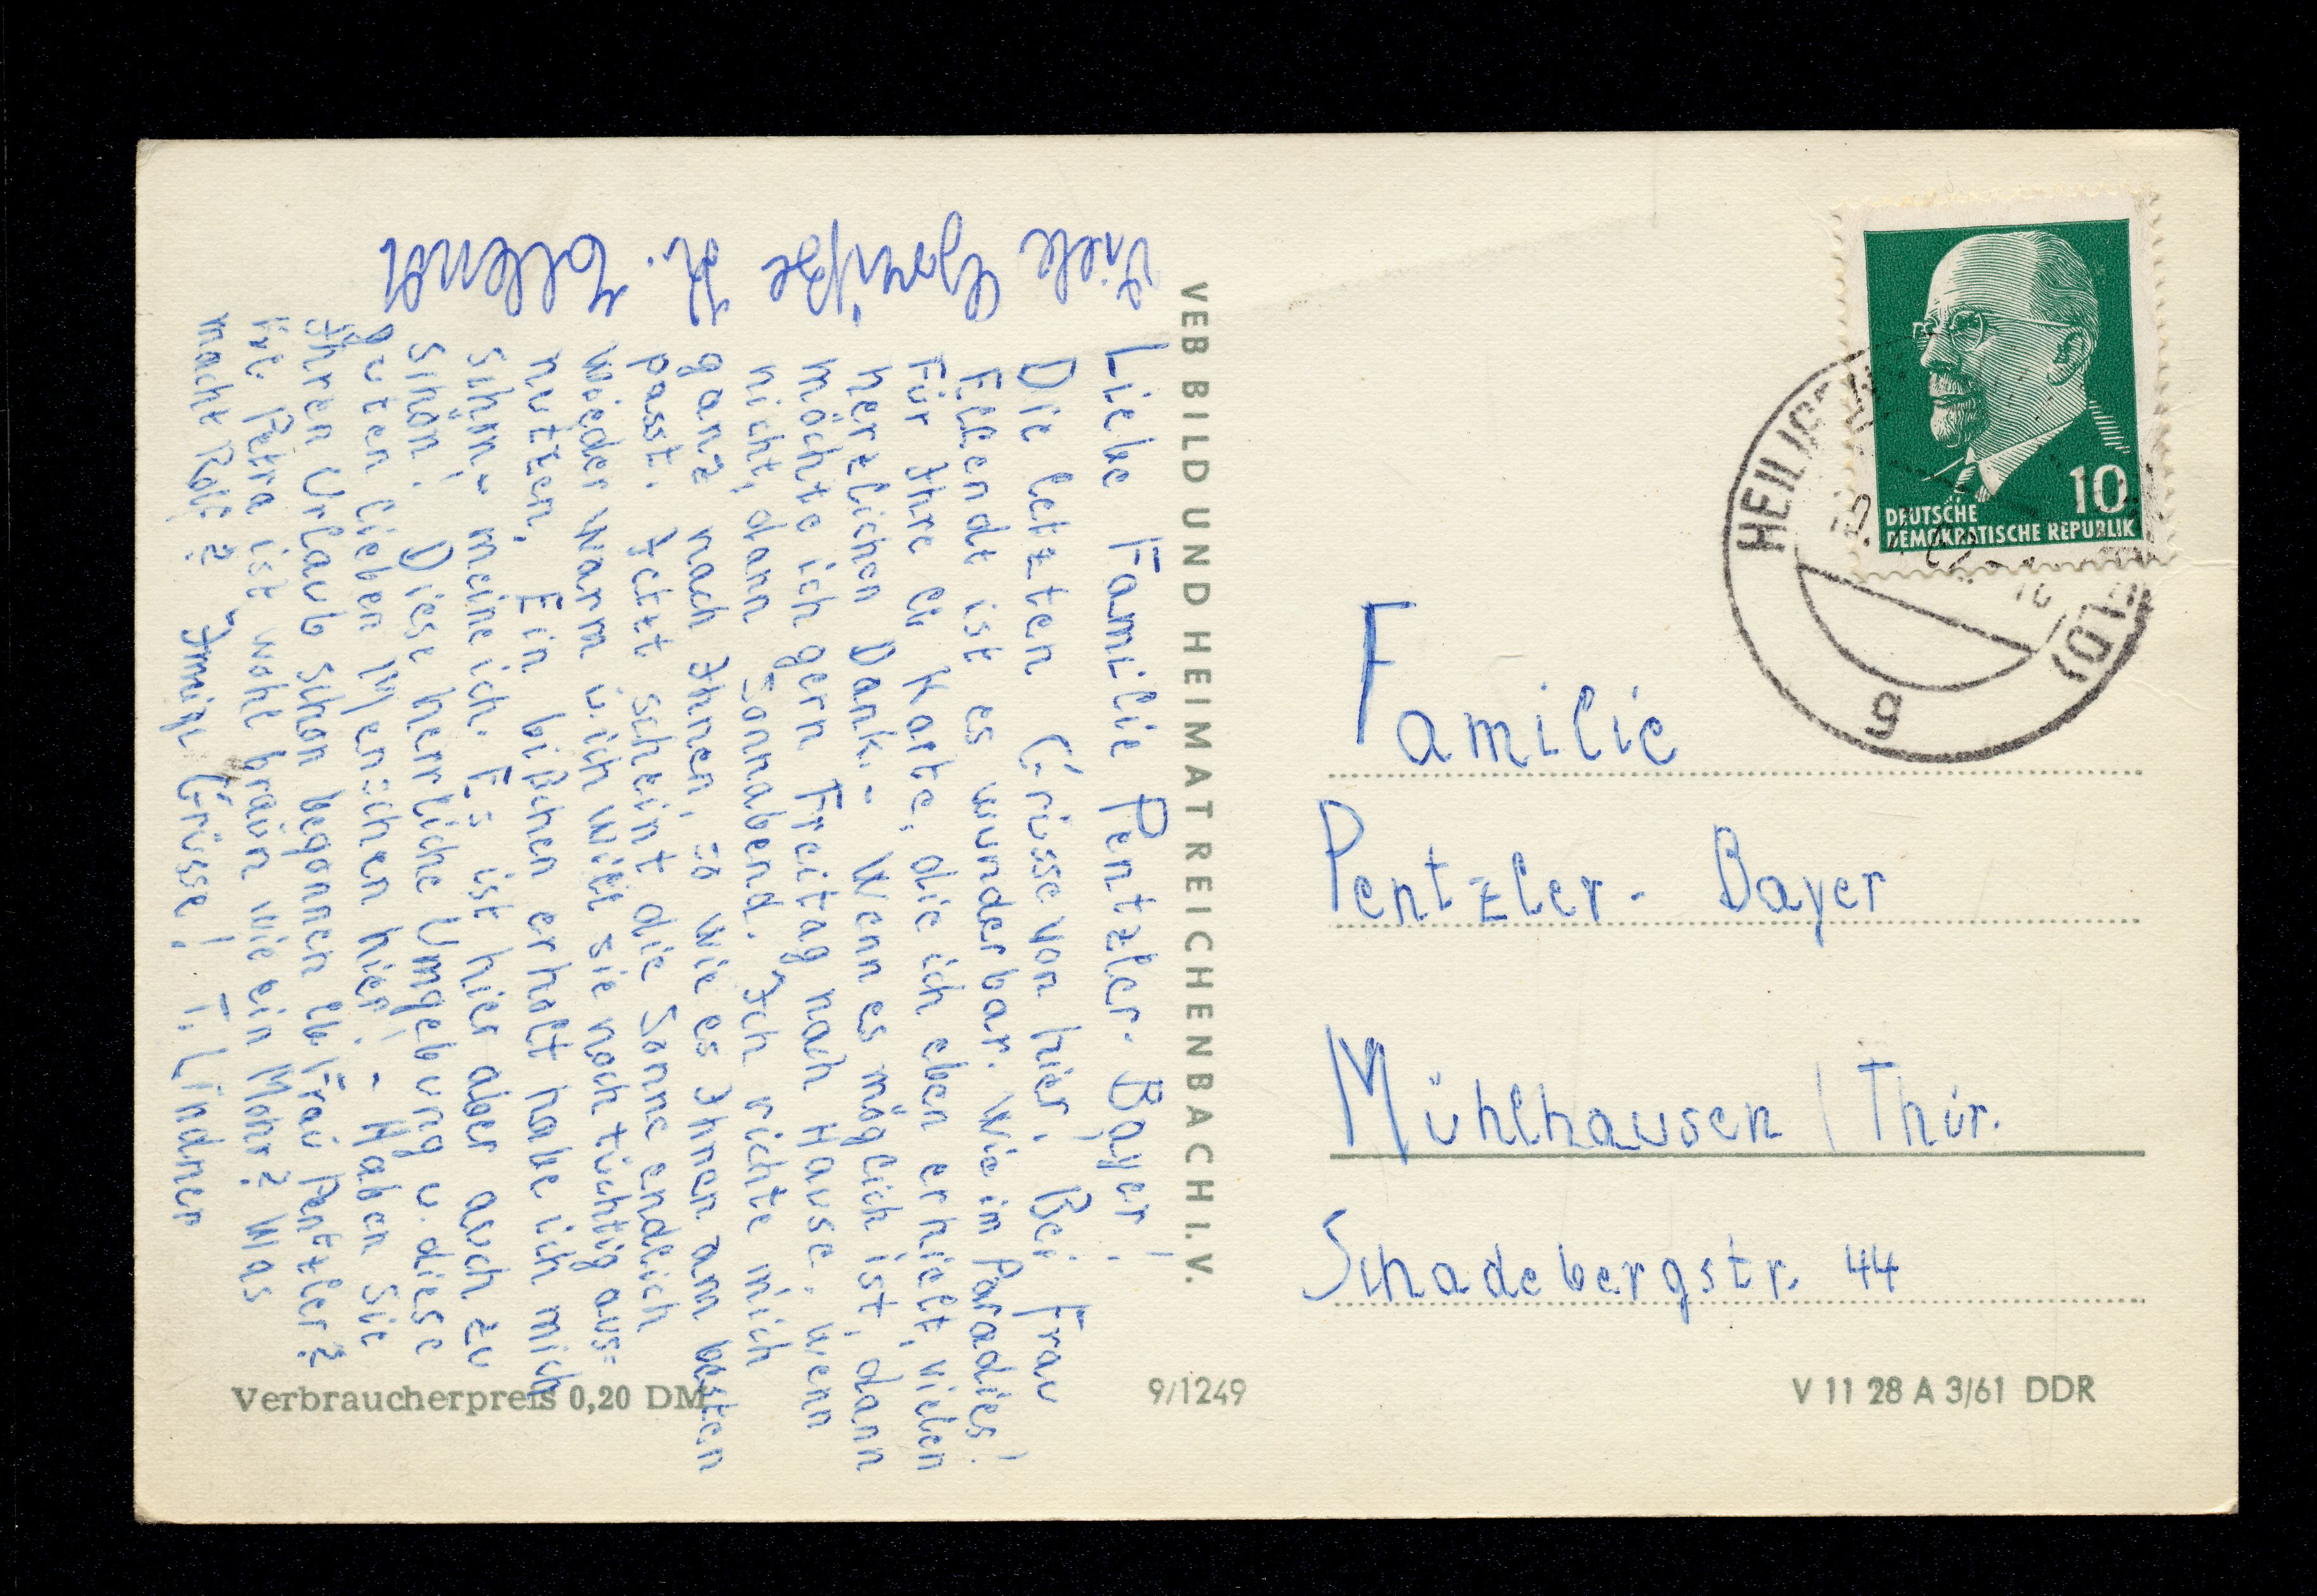 Liebe Familie Pentzler-Bayer!
Die letzten Grüsse von hier! Bei Frau
Ellendt ist es wunderbar. Wie im Paradies!
Für Ihre lb. Karte, die ich eben erhielt, vielen
herzlichen Dank. - Wenn es möglich ist, dann
möchte ich gern Freitag nach Hause, wenn
nicht, dann Sonnabend. Ich richte mich
ganz nach Ihnen, so wie es Ihnen am besten
passt. Jetzt scheint die Sonne endlich
wieder warm u. ich will sie noch tüchtig aus=
nutzen. Ein bißchen erholt habe ich mich
schon, meine ich. Es ist hier aber auch zu
schön! Diese herrliche Umgebung u. diese
guten lieben Menschen hier! - Haben Sie
Ihren Urlaub schon begonnen lb. Frau Pentzler?
Frl. Petra ist wohl braun wie ein Mohr? Was
macht Rolf? Innige Grüsse! T. Lindner
Viele Grüße H. Ellendt
VEB BILD UND HEIMAT REICHENBACH I. V.
Verbraucherpreis 0,20 DM
9/1249
V 11 28 A 3/61 DDR
10
DEUTSCHE
DEMOKRATISCHE REPUBLIK
g
Familie
Pentzler-Bayer
Mühlhausen / Thür.
Schadebergstr. 44